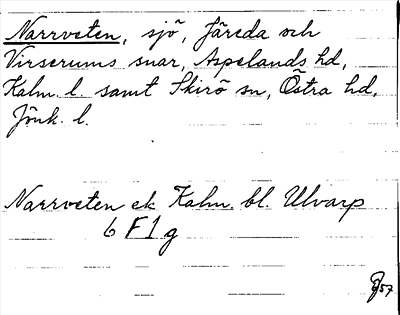 Narrveten, sjö, Järeda och
Virserums snar, Aspelands hd,
Kalm. l. samt Skirö sn, Östra hd,
Jönk. l.
Narrveten ek Kalm. bl. Ulvarp
6 F 1 g